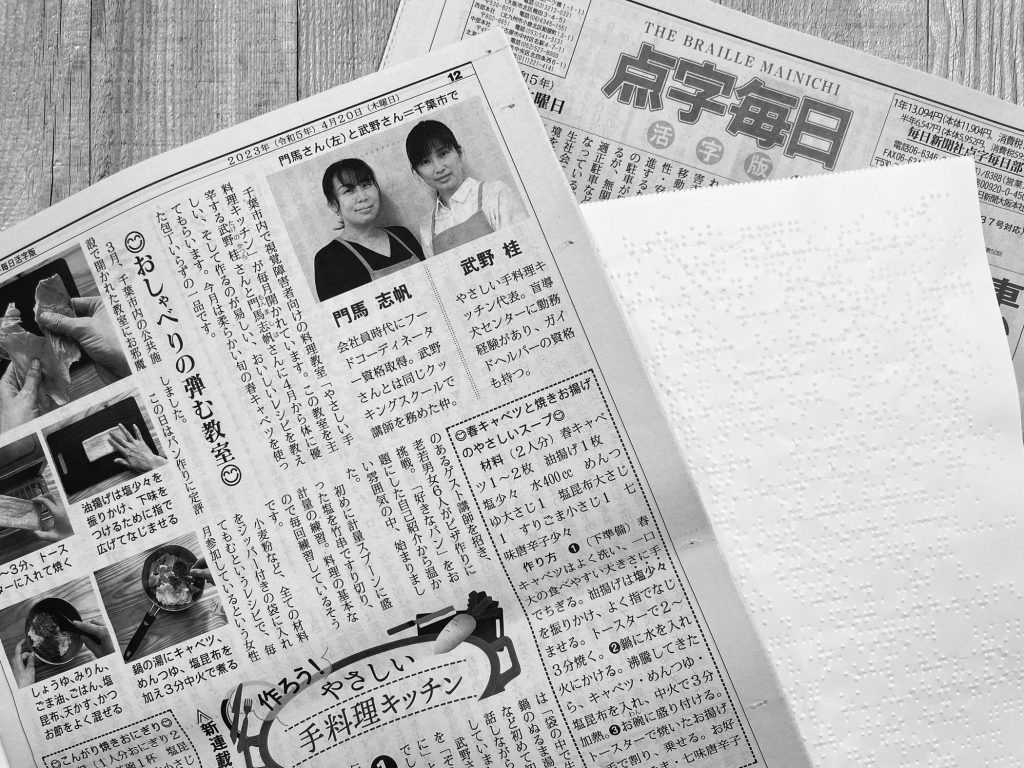 THE BRAILLE MAINICHI
点字毎日
活字版
1年13,094円(本体11,904円、消費税
半年6,547円(本体5,952円、消費税
毎日新聞社点字毎日部
12
2023年(令和5年)4月20日(木曜日)
門馬さん(左)と武野さん=千葉市で
武野 桂
やさしい手料理キ
ッチン代表。盲導
犬センターに勤務
経験があり、ガイ
ドヘルパーの資格
も持つ。
門馬 志帆
会社員時代にフー
ドコーディネータ
ー資格取得。武野
さんとは同じクッ
キングスクールで
講師を務めた仲。
千葉市内で視覚障害者向けの料理教室「やさしい手
料理キッチン」が毎月開かれています。この教室を主
宰する武野桂さんと門馬志帆さんに4月から体に優
しい、そして作るのが易しい、おいしいレシピを教え
てもらいます。今月は柔らかい旬の春キャベツを使っ
た包丁いらずの一品です。
おしゃべりの弾む教室
3月、千葉市内の公共施
設で開かれた教室にお邪魔
しました。
この日はパン作りに定評
のあるゲスト講師を招き、
老若男女6人がピザ作りに
挑戦。「好きなパン」をお
題にした自己紹介から温か
い雰囲気の中、始まりまし
た。
初めに計量スプーンに盛
った塩を竹串ですり切り、
計量の練習。料理の基本な
ので毎回練習しているそう
です。
小麦粉など、全ての材料
をジッパー付きの袋に入れ
てもむというレシピで、毎
月参加しているという女性
は「袋の中で生
春キャベツと焼きお揚げ
のやさしいスープ
材料(2人分) 春キャベ
ツ1~2枚 油揚げ1枚
塩少々 水400cc めんつ
ゆ大さじ1 塩昆布大さじ
1 すりごま小さじ1 七
味唐辛子少々
作り方 ❶(下準備) 春
キャベツはよく洗い、一口
大の食べやすい大きさに手
でちぎる。油揚げは塩少々
を振りかけ、よく指でなじ
ませる。トースターで2~
3分焼く。❷鍋に水を入れ
火にかける。沸騰してきた
ら、キャベツ・めんつゆ・
塩昆布を入れ、中火で3分
加熱。❸お椀に盛り付ける。
トースターで焼いたお揚げ
を手で割り、乗せる。お好
ま・七味唐辛子
油揚げは塩少々を
振りかけ、下味を
つけるために指で
広げてなじませる
~3分、トース
ターに入れて焼く
鍋の湯にキャベツ、
めんつゆ、塩昆布を
加え3分中火で煮る
しょうゆ、みりん、
ごま油、ごはん、塩
昆布、天かす、かつ
お節をよく混ぜる
こんがり焼きおにぎり
作ろう!
やさしい
手料理キッチン
新連載
❶